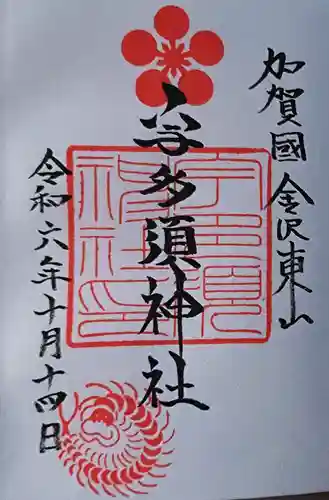 加賀國金沢東山
宇多須神社
令和六年十月十四日